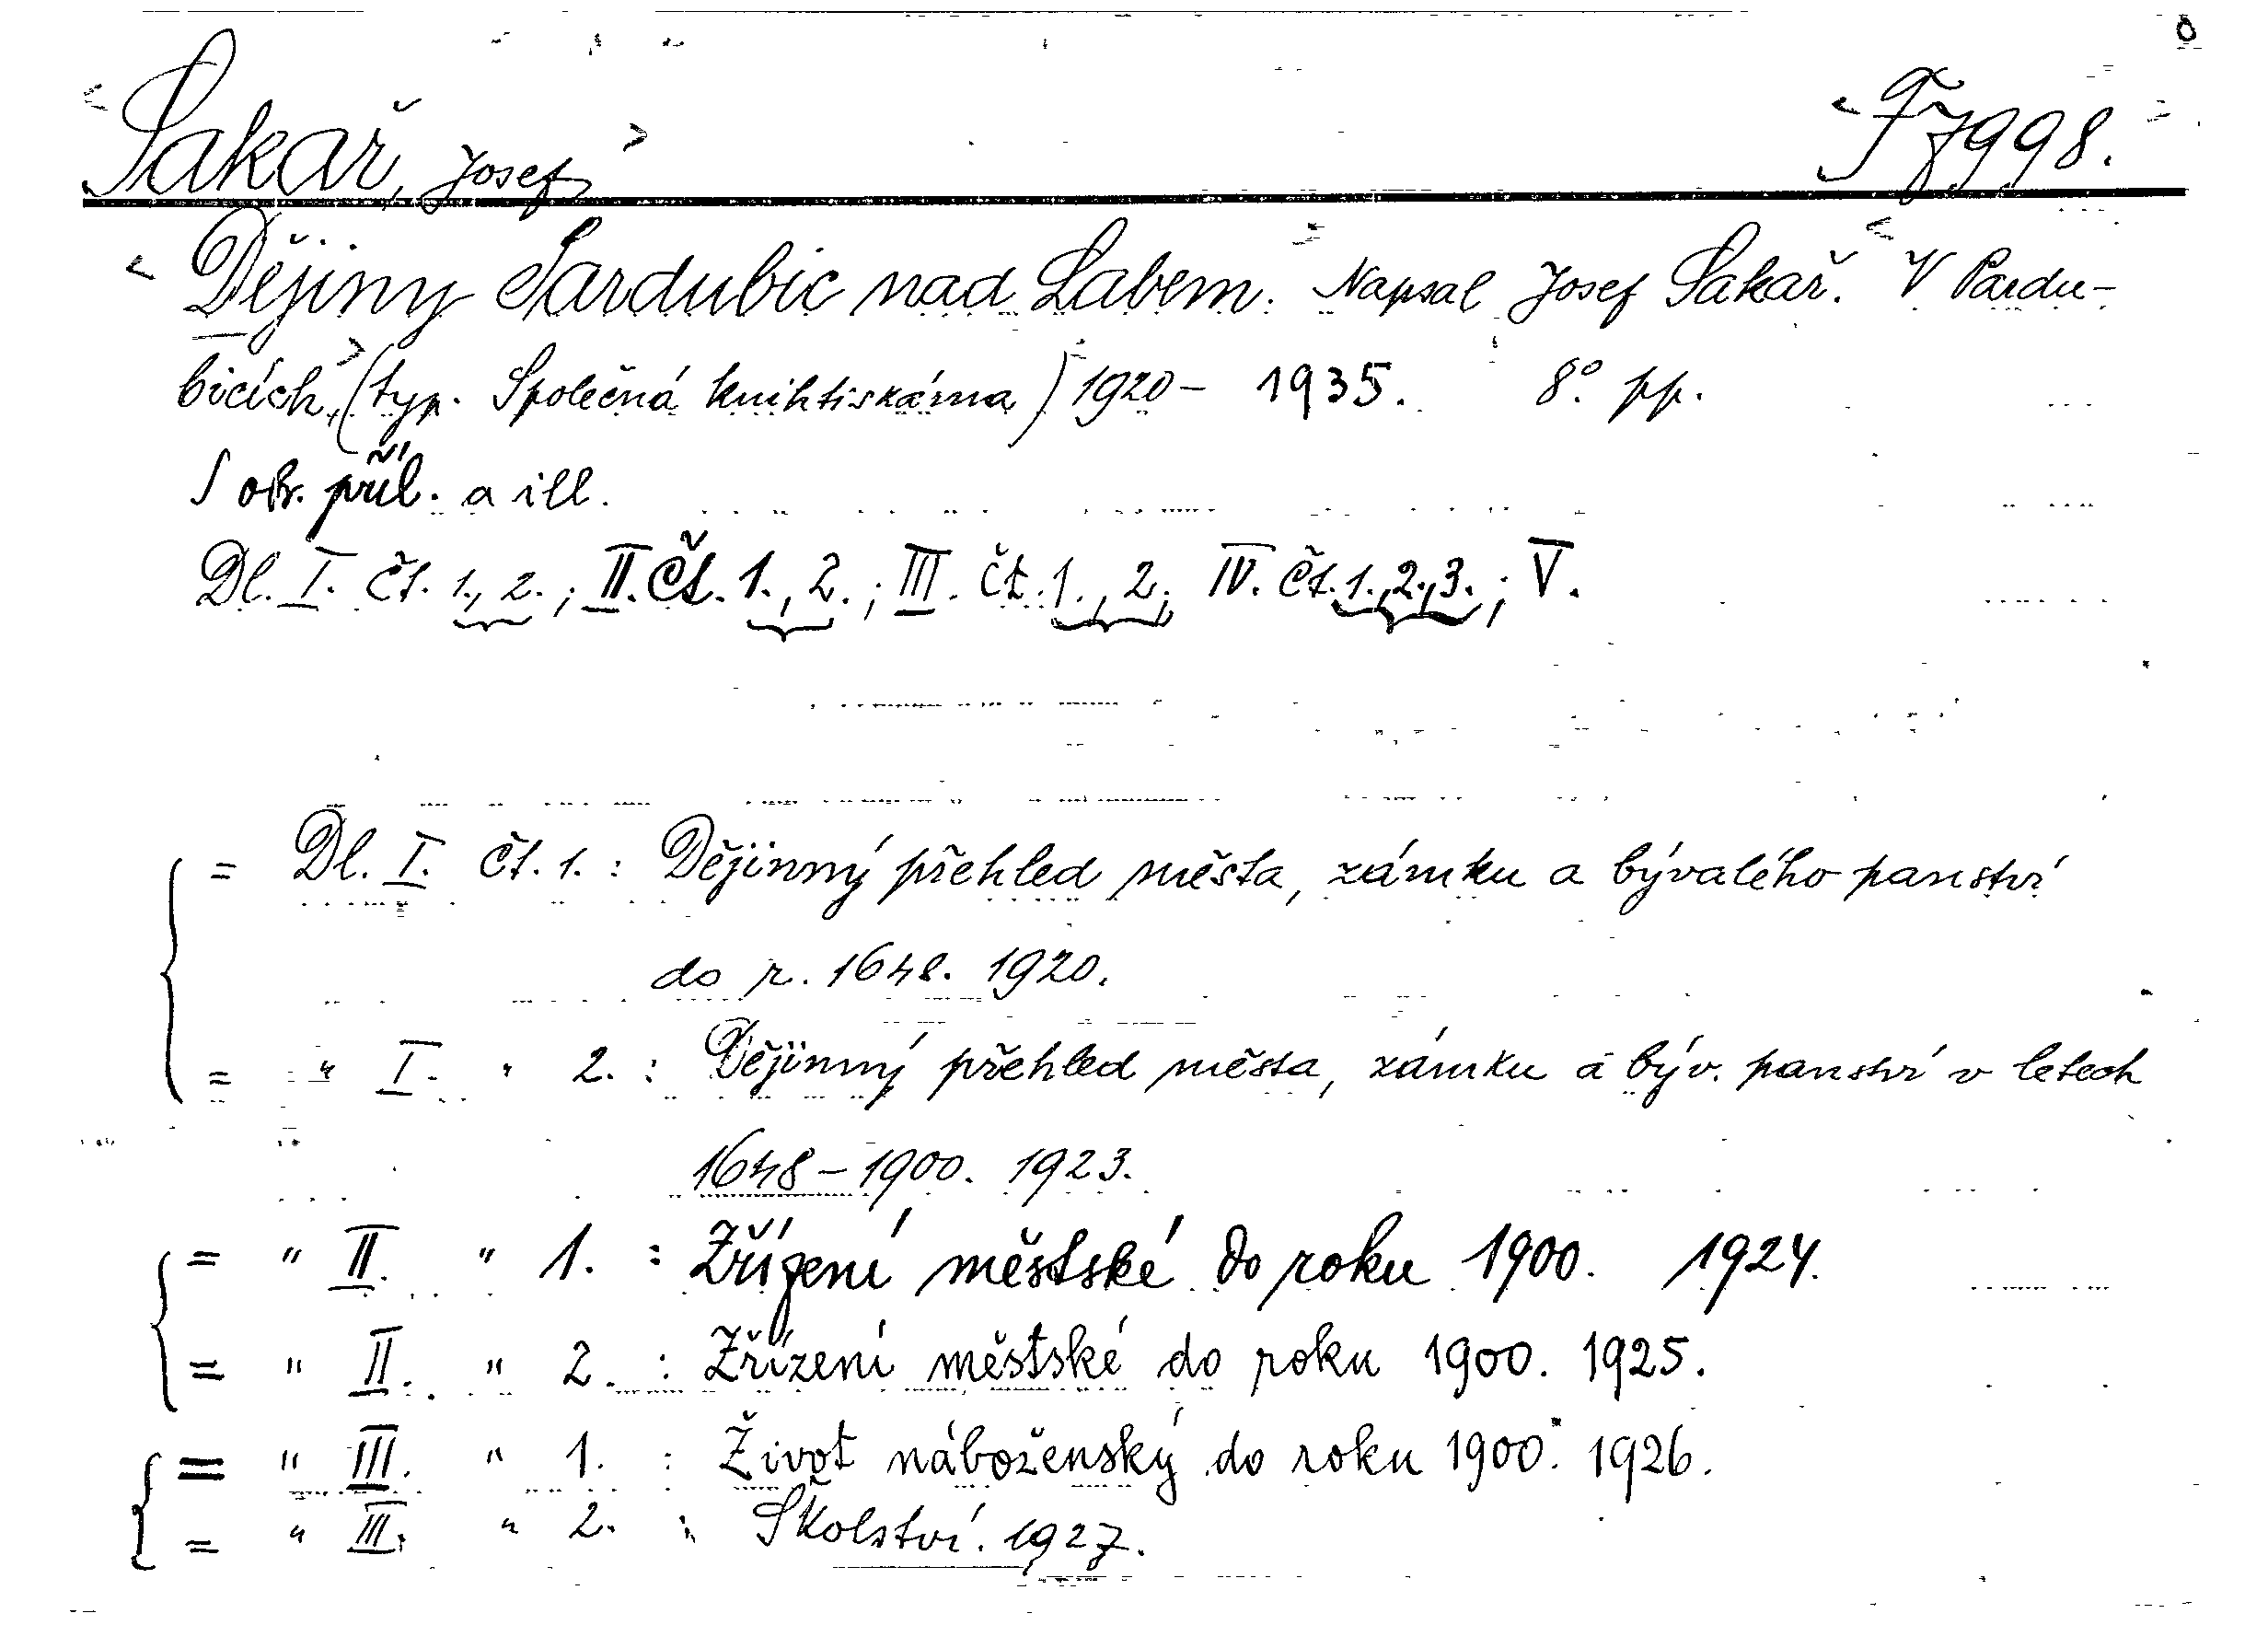 Sakař, Josef F 7998.
Dějiny Pardubic nad Labem. Napsal Josef Sakař. V Pardu-
bicích, (typ. Společná knihtiskárna) 1920- 1935. 8° pp.
S obr. příl. a ill.
Dl. I. Čt. 1., 2.; II. Čt. 1., 2.; III. Čt. 1., 2; IV. Čt. 1., 2., 3.; V.
= Dl. I. Čt. 1. : Dějinný přehled města, zámku a bývalého panství
do r. 1648. 1920.
= " I. " 2. : Dějinný přehled města, zámku a býv. panství v letech
1648-1900. 1923.
= " II. " 1. : Zřízení městské do roku 1900. 1924.
= " II. " 2. : Zřízení městské do roku 1900. 1925.
= " III. " 1. : Život náboženský do roku 1900. 1926.
= " III. " 2. : Školství. 1927.